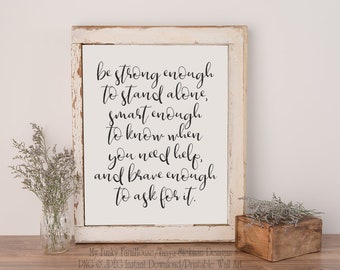 be strong enough
to stand alone,
smart enough
to know when
you need help,
and brave enough
to ask for it.
PNG & JPEG Instant Download/Printable Wall Art